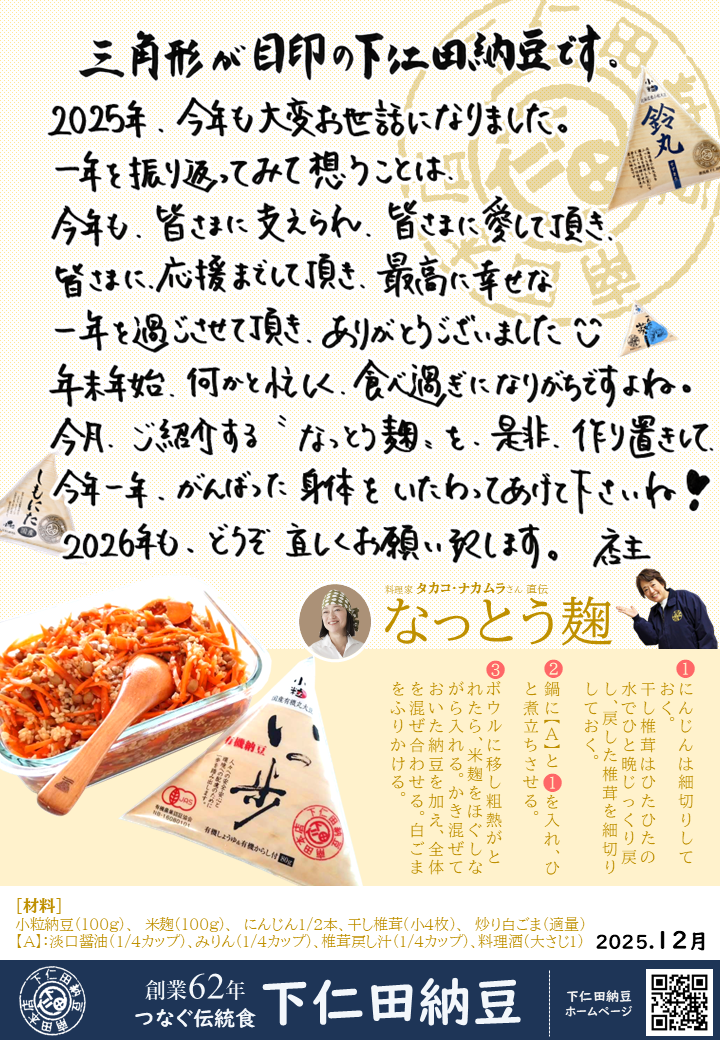 三角形が目印の下仁田納豆です。
2025年、今年も大変お世話になりました。
一年を振り返ってみて想うことは、
今年も、皆さまに支えられ、皆さまに愛して頂き、
皆さまに、応援までして頂き、最高に幸せな
一年を過ごさせて頂き、ありがとうございました
年末年始、何かと忙しく、食べ過ぎになりがちですよね。
今月、ご紹介する〝なっとう麹〟を、是非、作り置きして、
今年一年、がんばった身体をいたわってあげて下さいね!
2026年も、どうぞ宜しくお願い致します。 店主
鈴丸
しもにた
国産
料理家 タカコ・ナカムラさん 直伝
なっとう麹
❶にんじんは細切りして
おく。
干し椎茸はひたひたの
水でひと晩じっくり戻
し、戻した椎茸を細切り
しておく。
❷鍋に【A】と❶を入れ、ひ
と煮立ちさせる。
❸ボウルに移し粗熱がと
れたら、米麹をほぐしな
がら入れる。かき混ぜて
おいた納豆を加え、全体
を混ぜ合わせる。白ごま
をふりかける。
小粒
有機納豆
いっ歩
人々への安全安心と
環境への配慮のために
一歩を踏み出します。
JAS
有機農業認証協会
有機しょうゆ&有機からし付
80g
下仁田納豆
南田本店
[材料]
小粒納豆(100g)、 米麹(100g)、 にんじん1/2本、干し椎茸(小4枚)、 炒り白ごま(適量)
【A】:淡口醤油(1/4カップ)、みりん(1/4カップ)、椎茸戻し汁(1/4カップ)、料理酒(大さじ1)
2025.12月
下仁田納豆
南田本店
創業62年
つなぐ伝統食
下仁田納豆
下仁田納豆
ホームページ